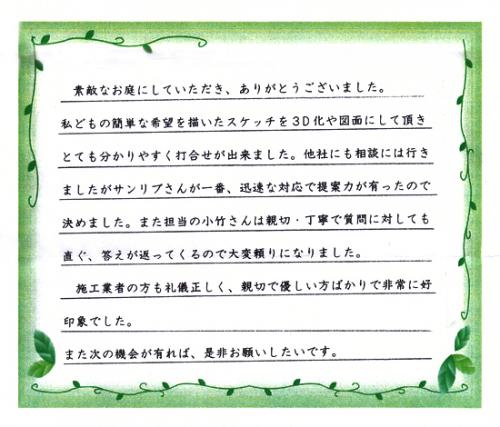 素敵なお庭にしていただき、ありがとうございました。
私どもの簡単な希望を描いたスケッチを3D化や図面にして頂き
とても分かりやすく打合せが出来ました。他社にも相談には行き
ましたがサンリブさんが一番、迅速な対応で提案力が有ったので
決めました。また担当の小竹さんは親切・丁寧で質問に対しても
直ぐ、答えが返ってくるので大変頼りになりました。
施工業者の方も礼儀正しく、親切で優しい方ばかりで非常に好
印象でした。
また次の機会が有れば、是非お願いしたいです。